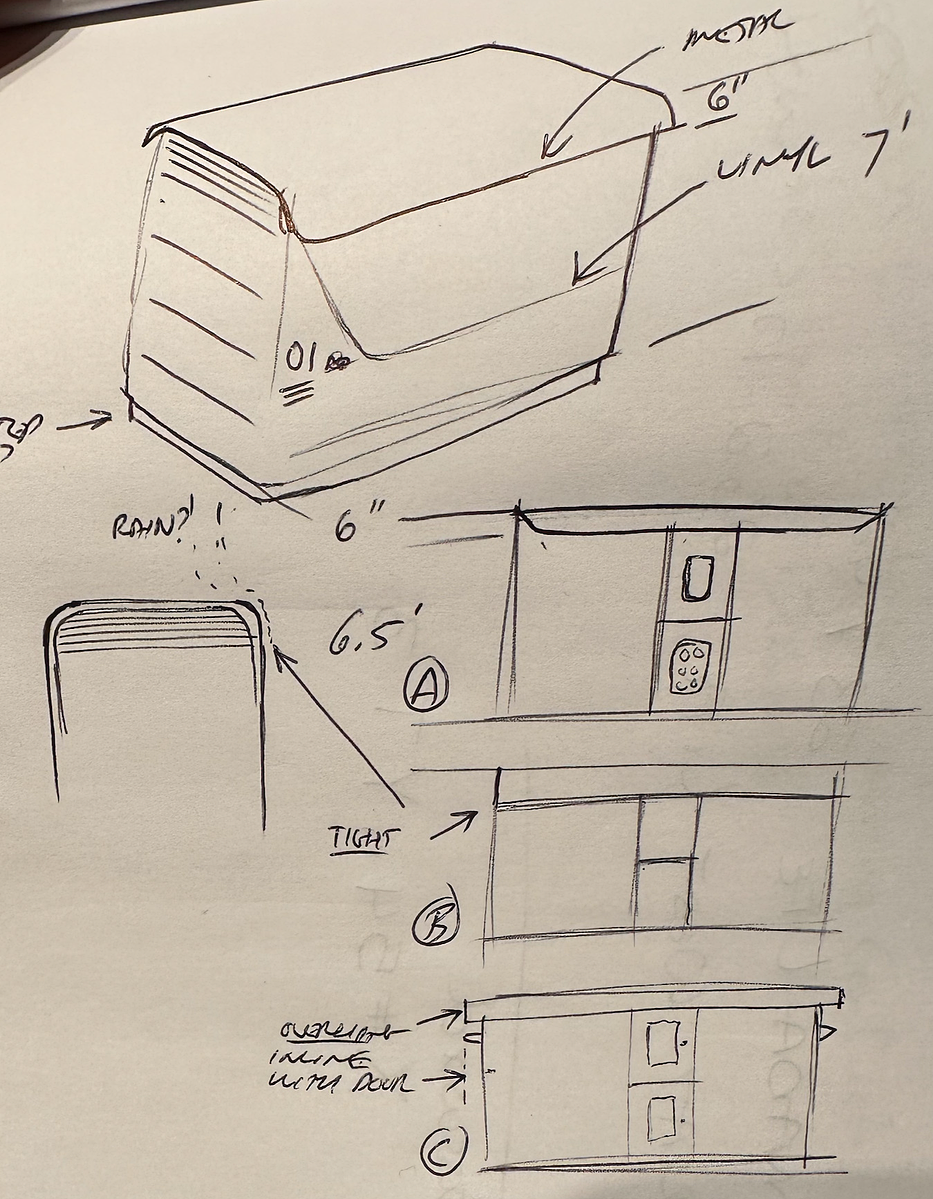 METAL
6"
VINYL 7'
01
RAIN?!
6"
6.5'
A
TIGHT
B
OVERHANG
INLINE
WITH DOOR
C